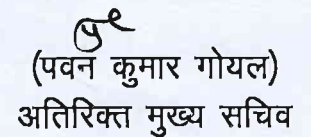 (पवन कुमार गोयल)
अतिरिक्त मुख्य सचिव